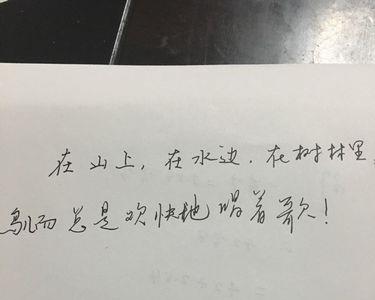 在山上，在水边．在树林里，
鸟儿而总是欢快地唱着歌！